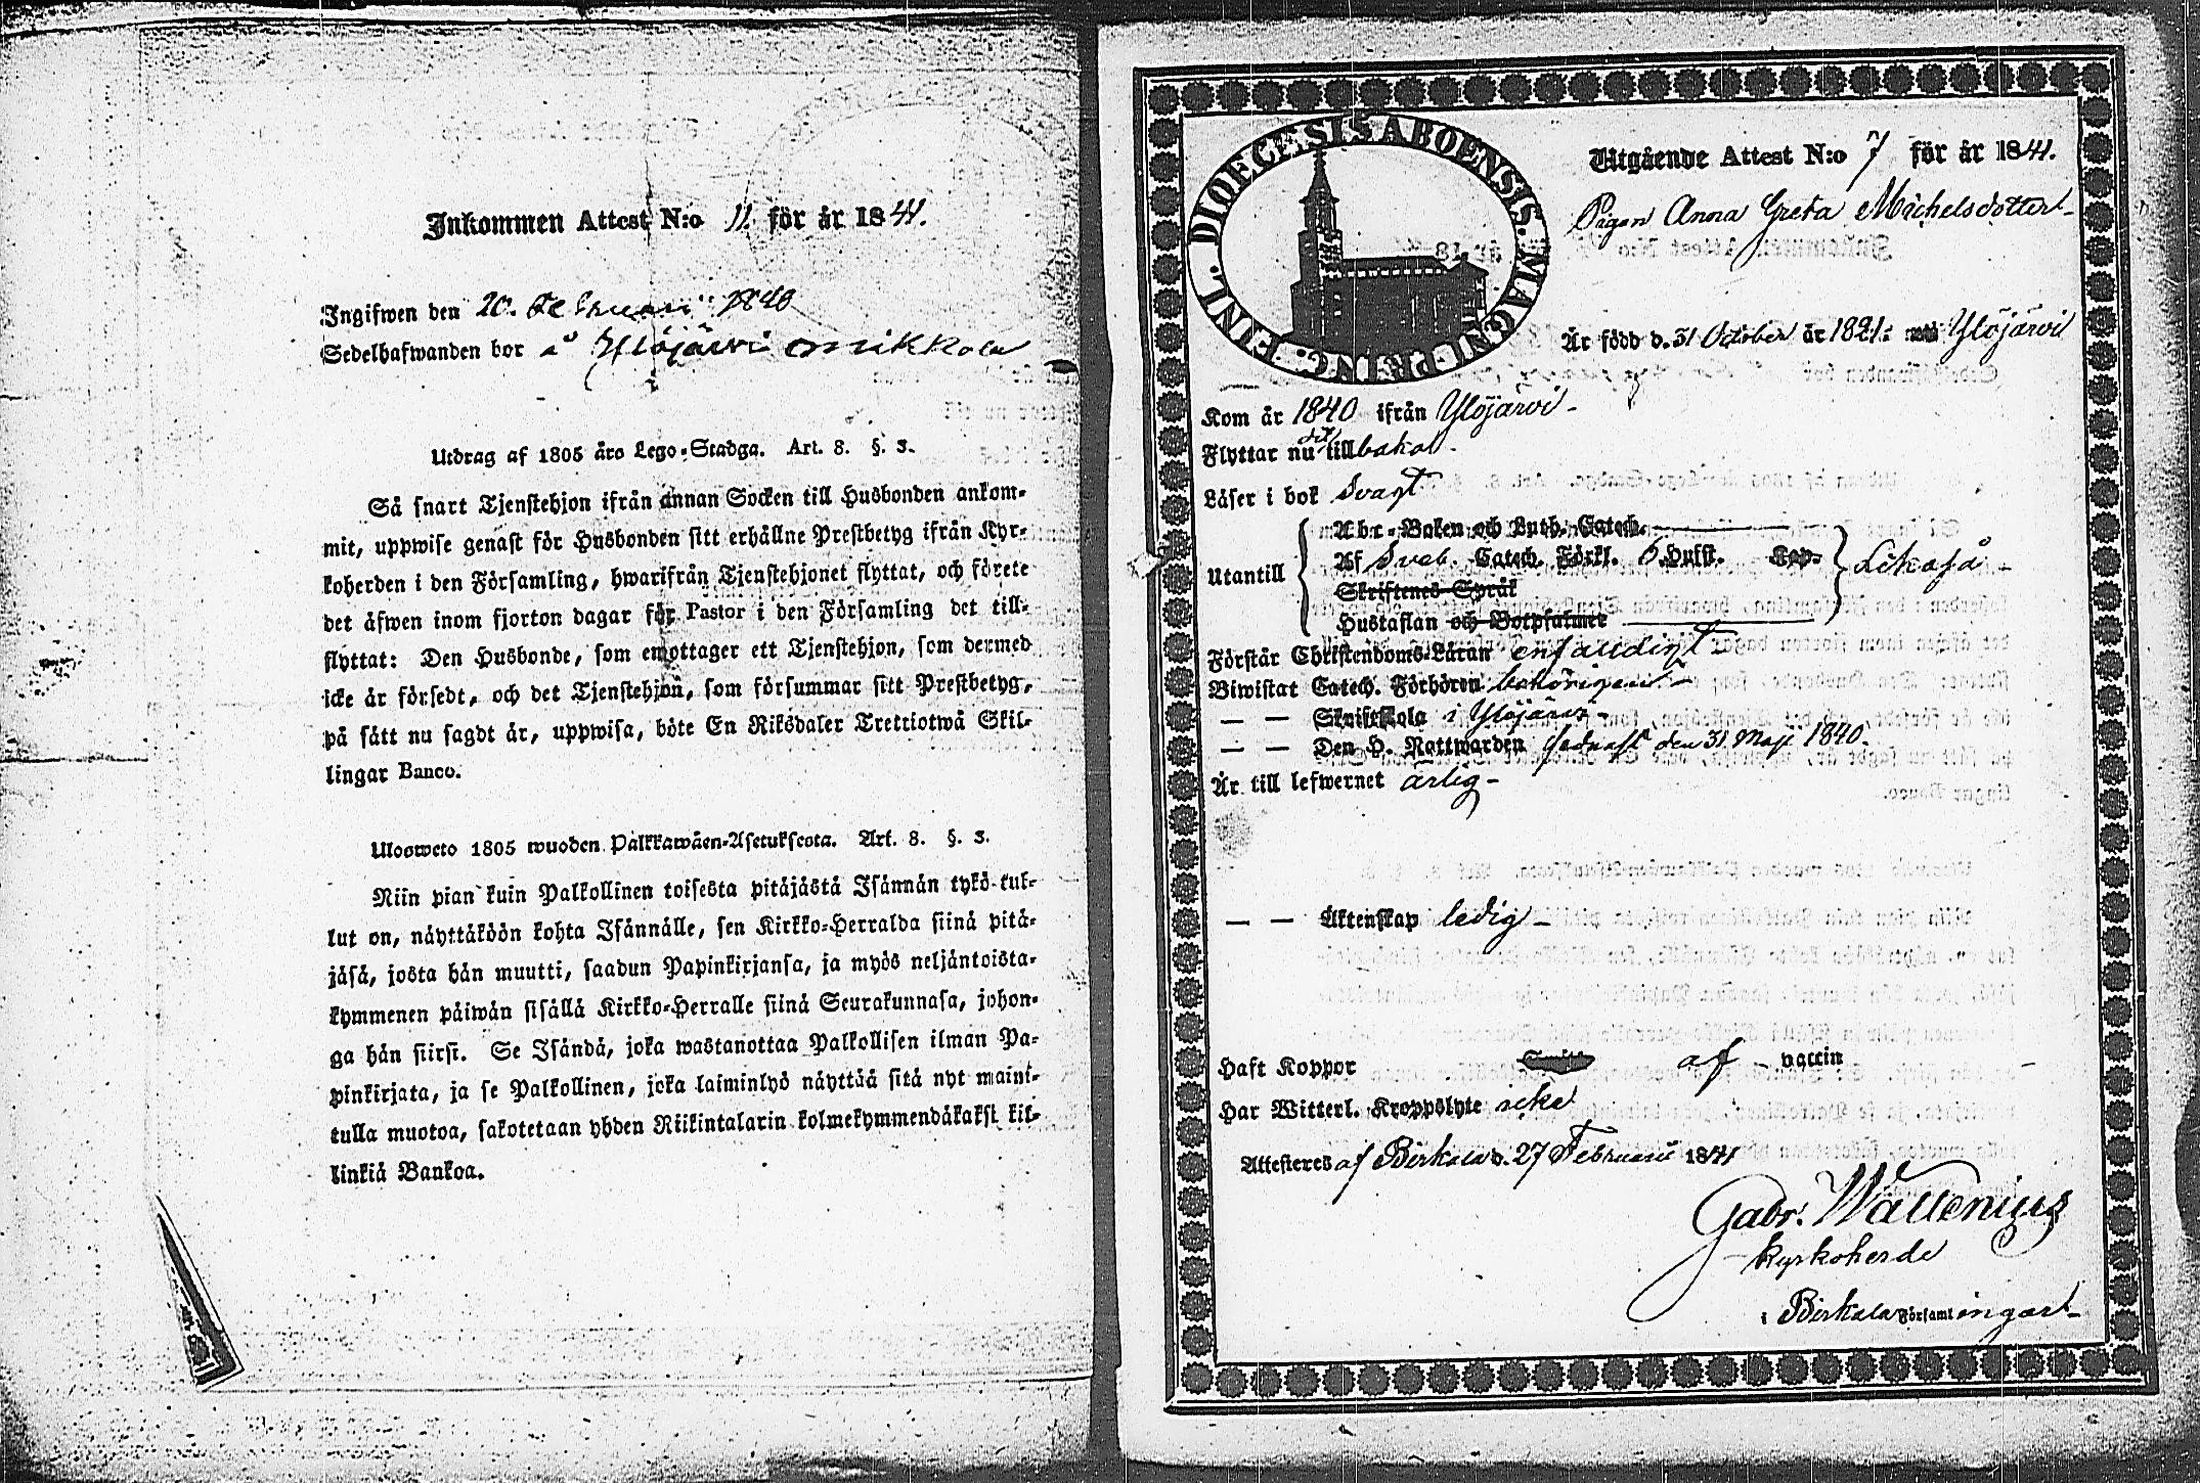 Inkommen Attest N:o 11. för år 1841.
Ingifwen den 20. Februarii 1840
Sedelhafwanden bor å Ylöjärvi Mikkola
Utdrag af 1805 års Lego-Stadga. Art. 8. §. 3.
Så snart Tjenstehjon ifrån annan Socken till Husbonden ankom-
mit, uppwise genast för Husbonden sitt erhållne Prestbetyg ifrån Kyr-
koherden i den Församling, hwarifrån Tjenstehjonet flyttat, och förete
det äfwen inom fjorton dagar för Pastor i den Församling det till-
flyttat: Den Husbonde, som emottager ett Tjenstehjon, som dermed
icke är försedt, och det Tjenstehjon, som försummar sitt Prestbetyg,
på sätt nu sagdt är, uppwisa, böte En Riksdaler Trettiotwå Skil-
lingar Banco.
Ulosweto 1805 wuoden Palkkawäen-Asetuksesta. Art. 8. §. 3.
Niin pian kuin Palkollinen toisesta pitäjästä Isännän tykö tul-
lut on, näyttäköön kohta Isännälle, sen Kirkko-Herralda siinä pitä-
jäsä, josta hän muutti, saadun Papinkirjansa, ja myös neljäntoista-
kymmenen päiwän sisällä Kirkko-Herralle siinä Seurakunnasa, johon-
ga hän siirsi. Se Isändä, joka wastanottaa Palkollisen ilman Pa-
pinkirjata, ja se Palkollinen, joka laiminlyö näyttää sitä nyt mainit-
tulla muotoa, sakotetaan yhden Riikintalarin kolmekymmendäkaksi kil-
linkiä Bankoa.
DIOECESIS ABOENSIS. MAGNI PRINC. FINL.
Utgående Attest N:o 7 för år 1841.
Pigan Anna Greta Michelsdotter
Är född d. 31 October år 1821. Ylöjärvi
Kom år 1840 ifrån Ylöjärvi
Flyttar nu dit tillbaka
Läser i bok svagt
Abc-Boken och Luth. Catech.
Af Sveb. Catech. Förkl. 6 Hufst. Cap.
Utantill Likaså
Skriftenes Språk
Hustaflan och Botpsalmer
Förstår Christendoms-Läran enfaldigt
Biwistat Catech. Förhören behörigen
— — Skriftskola i Ylöjärvi
— — Den H. Nattwarden sednast den 31 Maji 1840.
Är till lefwernet ärlig
— — Äktenskap ledig
Haft Koppor af vaccin
Har Witterl. Kroppslyte icke
Attesteres af Birkala d. 27 Februarii 1841
Gabr. Wallenius
Kyrkoherde
i Birkala Församlingar